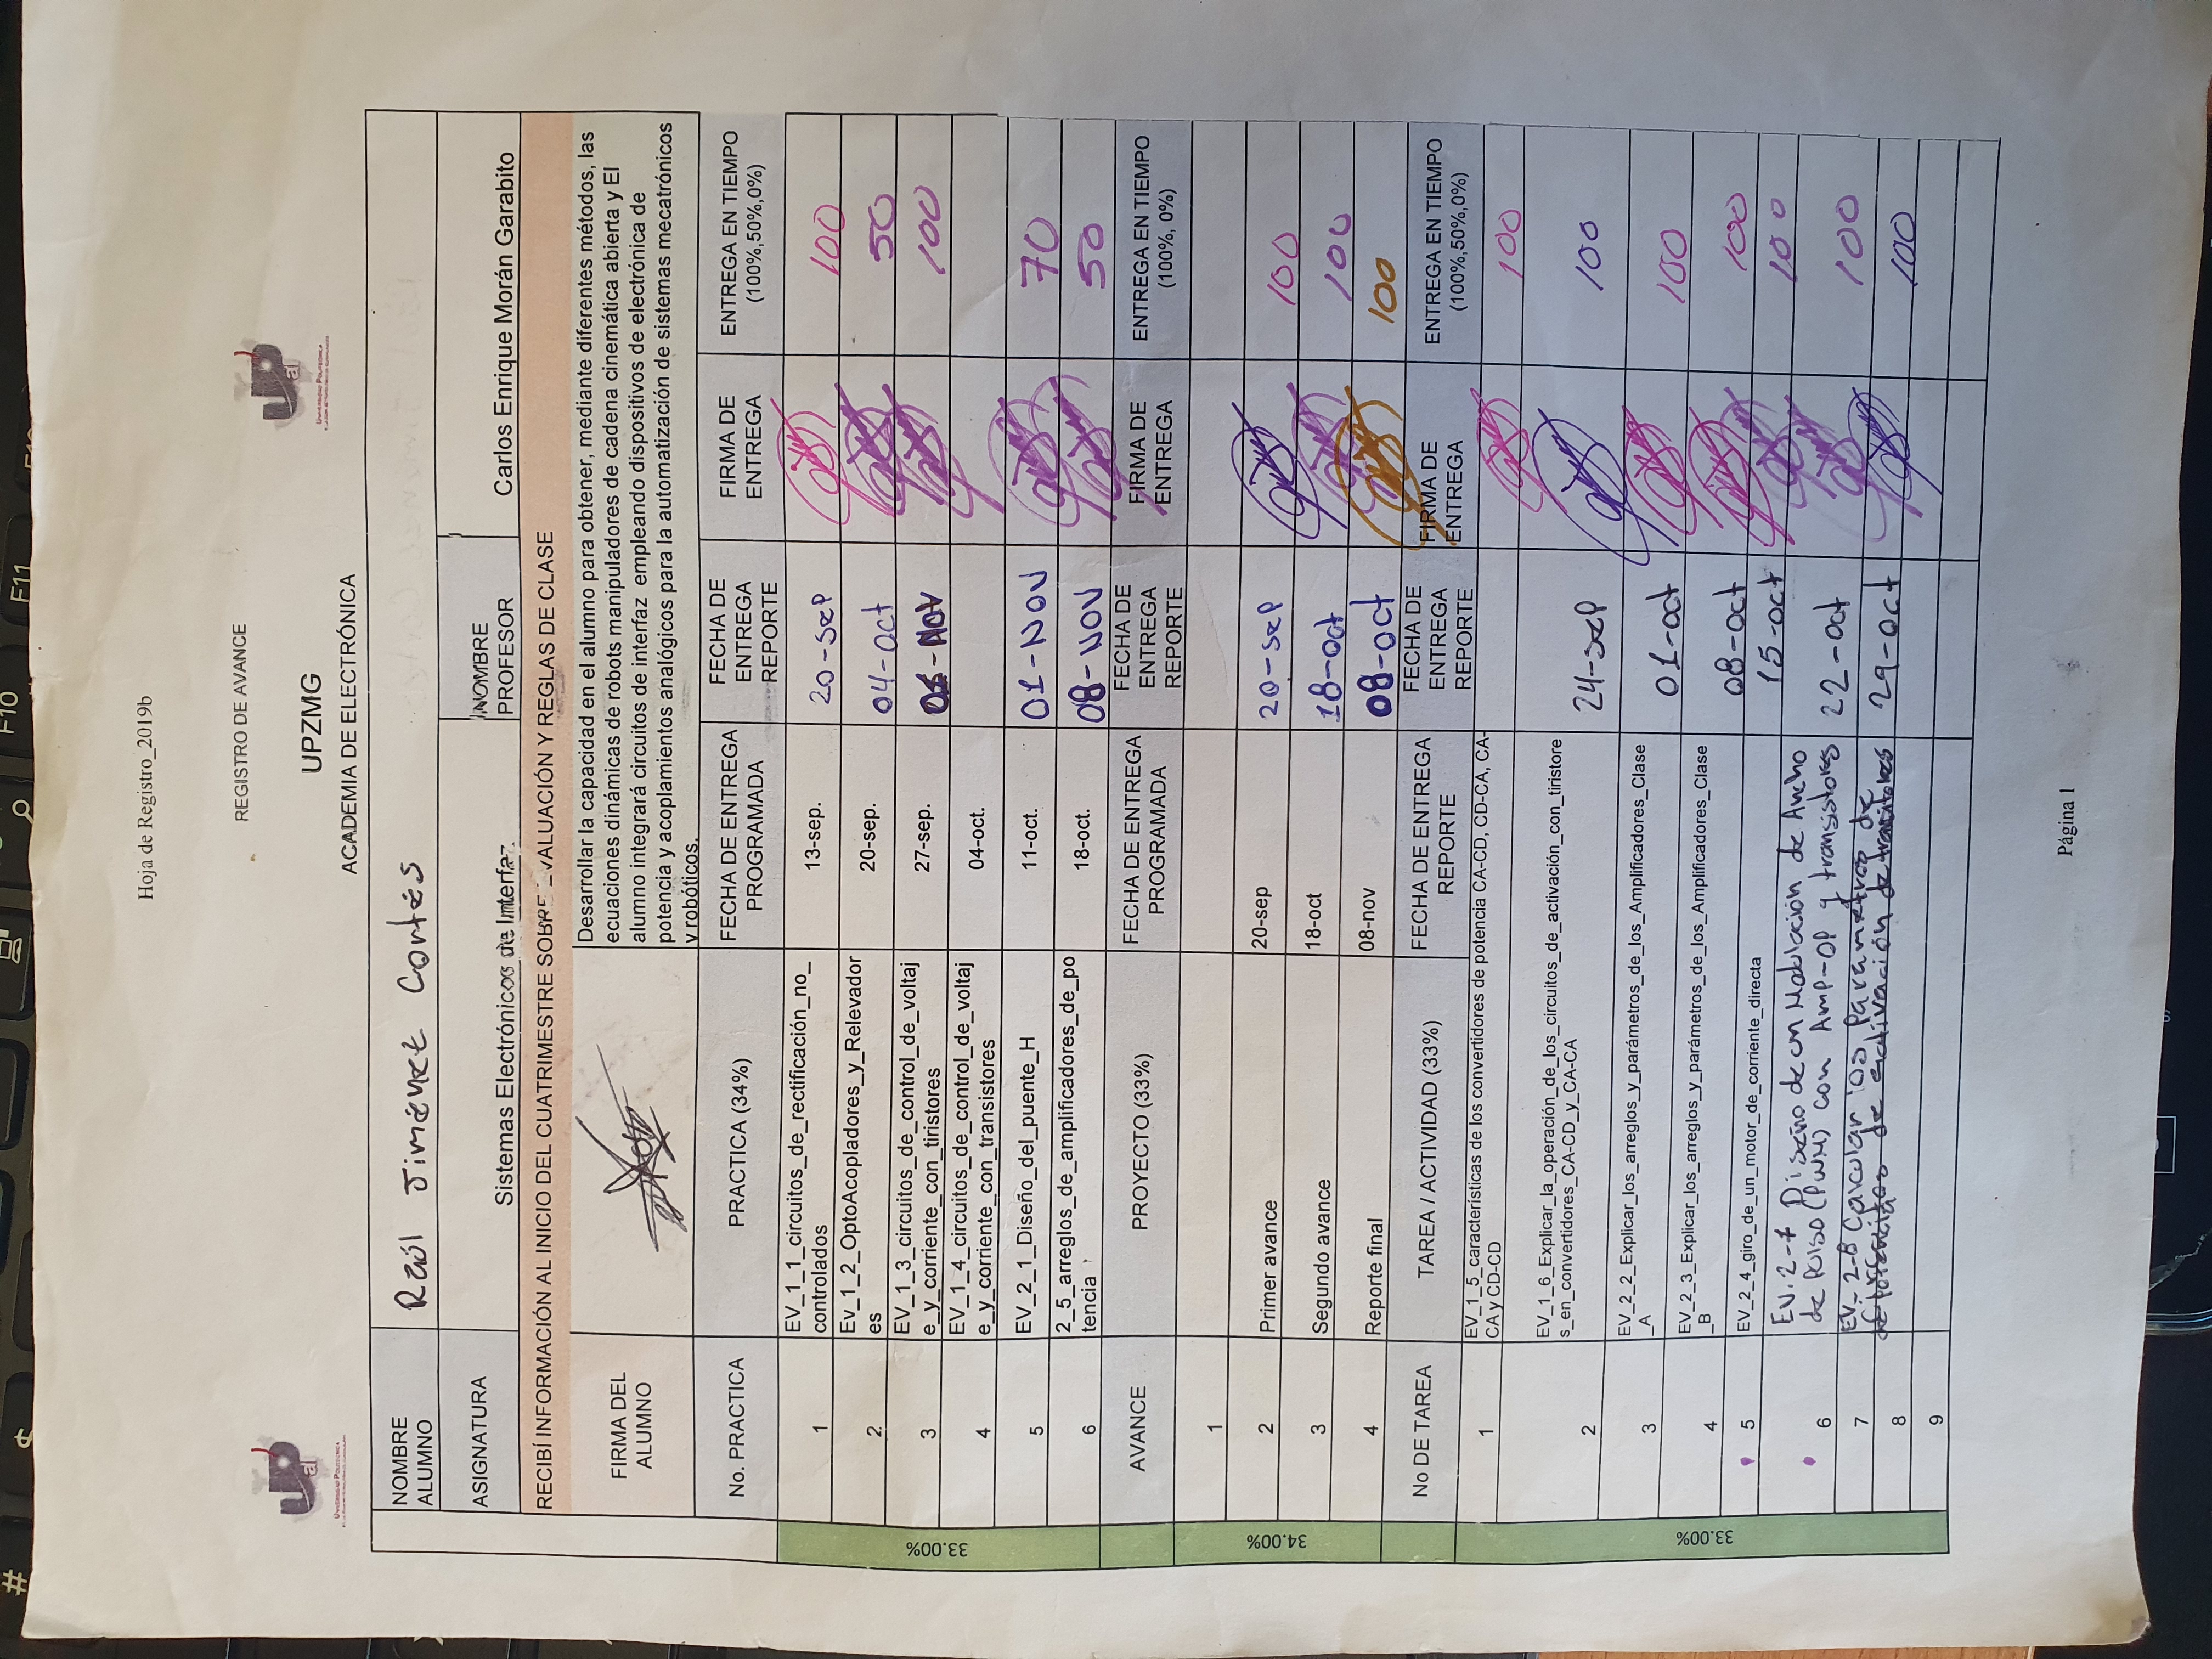 #
$
F10
F11
Hoja de Registro_2019b
REGISTRO DE AVANCE
UPZMG
ACADEMIA DE ELECTRÓNICA
UNIVERSIDAD POLITÉCNICA
UNIVERSIDAD POLITÉCNICA
NOMBRE ALUMNO
Raúl Jiménez Cortés
ASIGNATURA
Sistemas Electrónicos de Interfaz.
NOMBRE PROFESOR
Carlos Enrique Morán Garabito
RECIBÍ INFORMACIÓN AL INICIO DEL CUATRIMESTRE SOBRE EVALUACIÓN Y REGLAS DE CLASE
FIRMA DEL ALUMNO
Desarrollar la capacidad en el alumno para obtener, mediante diferentes métodos, las
ecuaciones dinámicas de robots manipuladores de cadena cinemática abierta y El
alumno integrará circuitos de interfaz empleando dispositivos de electrónica de
potencia y acoplamientos analógicos para la automatización de sistemas mecatrónicos
y robóticos.
No. PRACTICA PRACTICA (34%) FECHA DE ENTREGA PROGRAMADA FECHA DE ENTREGA REPORTE FIRMA DE ENTREGA ENTREGA EN TIEMPO (100%,50%,0%)
33.00%
1 EV_1_1_circuitos_de_rectificación_no_
controlados 13-sep. 20-sep 100
2 Ev_1_2_OptoAcopladores_y_Relevador
es 20-sep. 04-oct 50
3 EV_1_3_circuitos_de_control_de_voltaj
e_y_corriente_con_tiristores 27-sep. 01-NOV 100
4 EV_1_4_circuitos_de_control_de_voltaj
e_y_corriente_con_transistores 04-oct.
5 EV_2_1_Diseño_del_puente_H 11-oct. 01-NOV 70
6 2_5_arreglos_de_amplificadores_de_po
tencia 18-oct. 08-NOV 50
AVANCE PROYECTO (33%) FECHA DE ENTREGA PROGRAMADA FECHA DE ENTREGA REPORTE FIRMA DE ENTREGA ENTREGA EN TIEMPO (100%, 0%)
34.00%
1
2 Primer avance 20-sep 20-sep 100
3 Segundo avance 18-oct 18-oct 100
4 Reporte final 08-nov 08-oct 100
No DE TAREA TAREA / ACTIVIDAD (33%) FECHA DE ENTREGA REPORTE FECHA DE ENTREGA REPORTE FIRMA DE ENTREGA ENTREGA EN TIEMPO (100%,50%,0%)
33.00%
1 EV_1_5_características de los convertidores de potencia CA-CD, CD-CA, CA-
CA y CD-CD 100
2 EV_1_6_Explicar_la_operación_de_los_circuitos_de_activación_con_tiristore
s_en_convertidores_CA-CD_y_CA-CA 24-sep 100
3 EV_2_2_Explicar_los_arreglos_y_parámetros_de_los_Amplificadores_Clase
_A 01-oct 100
4 EV_2_3_Explicar_los_arreglos_y_parámetros_de_los_Amplificadores_Clase
_B 08-oct 100
5 EV_2_4_giro_de_un_motor_de_corriente_directa 15-oct 100
6 EV.2-7 Diseño de un Modulación de Ancho
de Pulso (PWM) con AMP-OP y transistores 22-oct 100
7 EV_2-8 Calcular los Parametros de
de activación de transitores 29-oct
8 100
9
Página 1